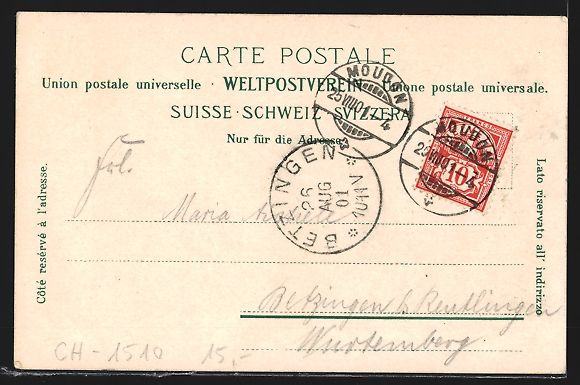 CARTE POSTALE
Union postale universelle · WELTPOSTVEREIN · Unione postale universale.
SUISSE · SCHWEIZ · SVIZZERA
Nur für die Adresse.
MOUDON
25 VIII 01 4
MOUDON
25 VIII 01 4
10
BETZINGEN
26
AUG
01
10-11 V
Frl.
Maria
Betzingen b. Reutlingen
Wurtemberg
Côté resérvé à l'adresse.
Lato riservato all' indirizzo
CH-1510 15,-